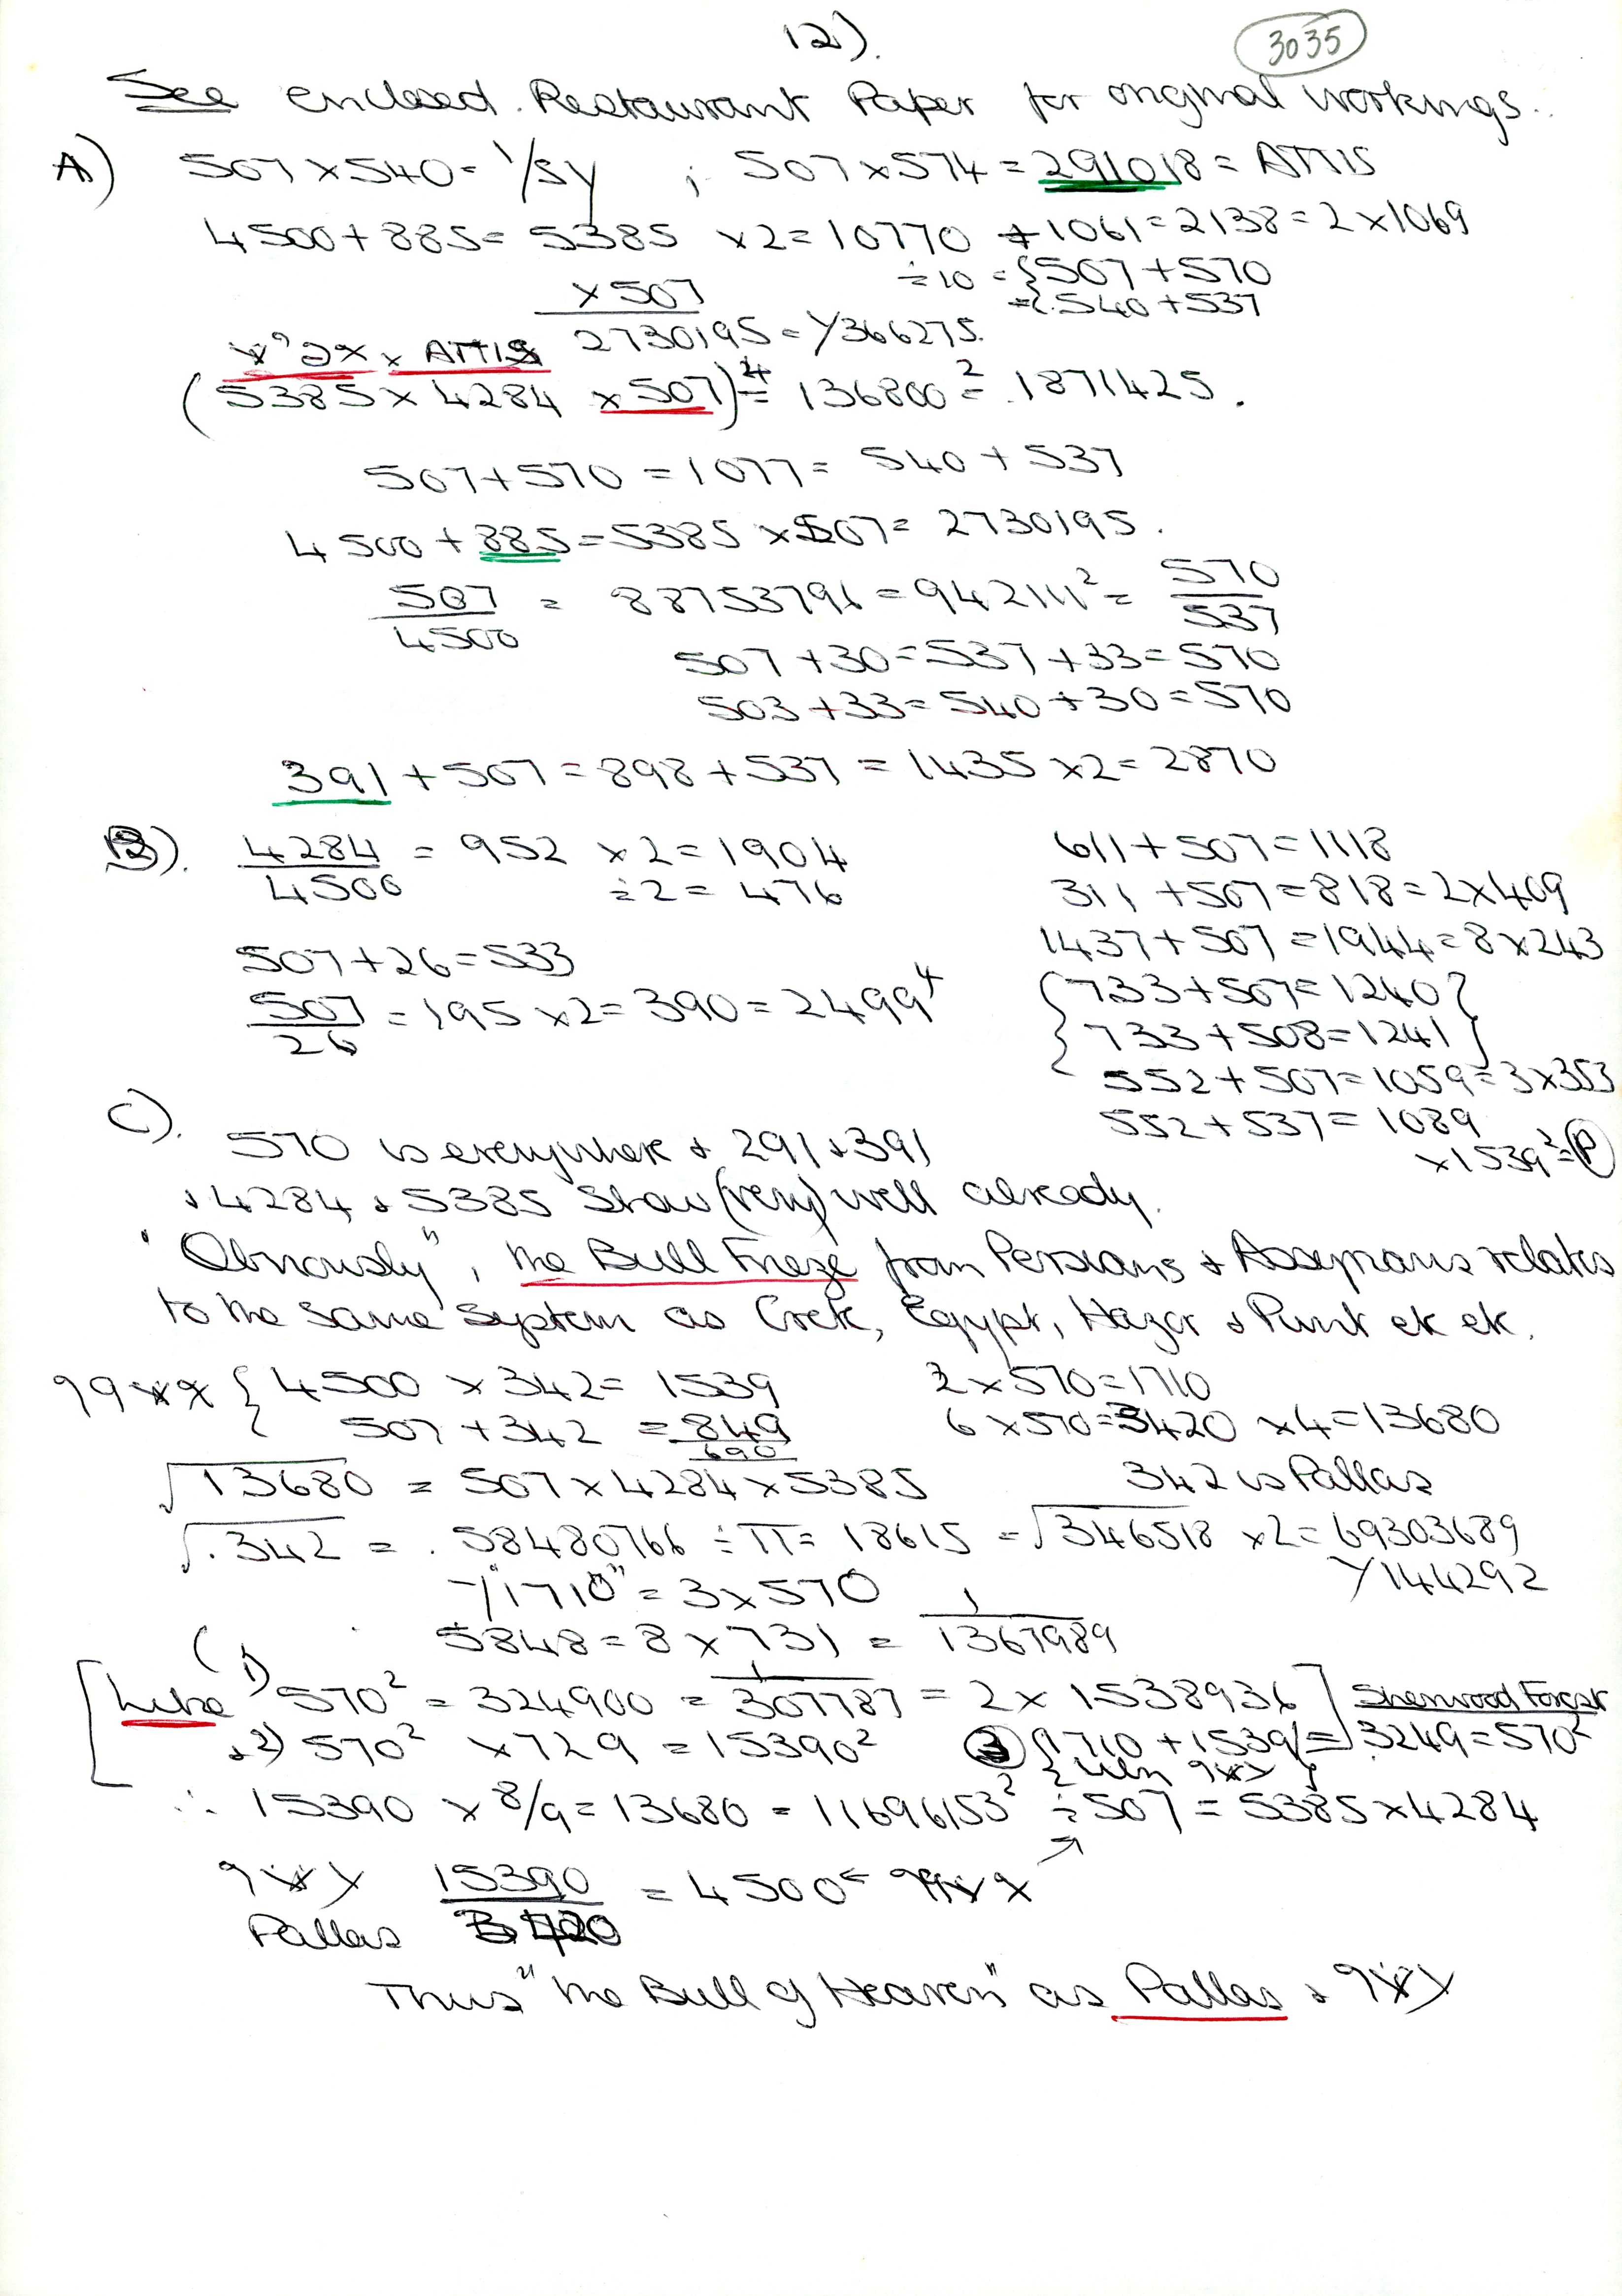 12).
3035
See enclosed. Restaurant Paper for original workings.
A) 507 x 540 = 1/SY ; 507 x 574 = 291018 = ATTIS
4500 + 885 = 5385 x 2 = 10770 + 1061 = 2138 = 2 x 1069
÷ 10 = { 507 + 570
= { 540 + 537
x 507
2730195 = Y366275.
x ATTIS
(5385 x 4284 x 507)⁴ = 136800² = .1871425.
507 + 570 = 1077 = 540 + 537
4500 + 885 = 5385 x 507 = 2730195.
507/4500 = 88753796 = 942111² = 570/537
507 + 30 = 537 + 33 = 570
503 + 33 = 540 + 30 = 570
391 + 507 = 898 + 537 = 1435 x 2 = 2870
B). 4284/4500 = 952 x 2 = 1904
÷ 2 = 476
507 + 26 = 533
507/26 = 195 x 2 = 390 = 2499⁴
611 + 507 = 1118
311 + 507 = 818 = 2 x 409
1437 + 507 = 1944 = 8 x 243
{ 733 + 507 = 1240 }
{ 733 + 508 = 1241 }
552 + 507 = 1059 = 3 x 353
552 + 537 = 1089
x 1539² = P
C). 570 is everywhere & 291 & 391
& 4284 & 5385 Show (very) well already.
"Obviously", the Bull Frieze from Persians & Assyrians relates
to the same system as Crete, Egypt, Hazor & Punt etc etc.
{ 4500 x 342 = 1539
507 + 342 = 849
690
2 x 570 = 1710
6 x 570 = 3420 x 4 = 13680
√13680 = 507 x 4284 x 5385
342 is Pallas
√.342 = .58480766 ÷ π = 18615 = √346518 x 2 = 69303689
Y144292
"/1710" = 3 x 570
5848 = 8 x 731 = 1/1367989
[ Luke 1) 570² = 324900 = 1/307787 = 2 x 1538936 ] Sherwood Forest
& 2) 570² x 729 = 15390² 3 { 1710 + 1539 } = 3249 = 570²
∴ 15390 x 8/9 = 13680 = 11696153² ÷ 507 = 5385 x 4284
15390/3420 = 4500
Pallas
Thus "the Bull of Heaven" as Pallas &